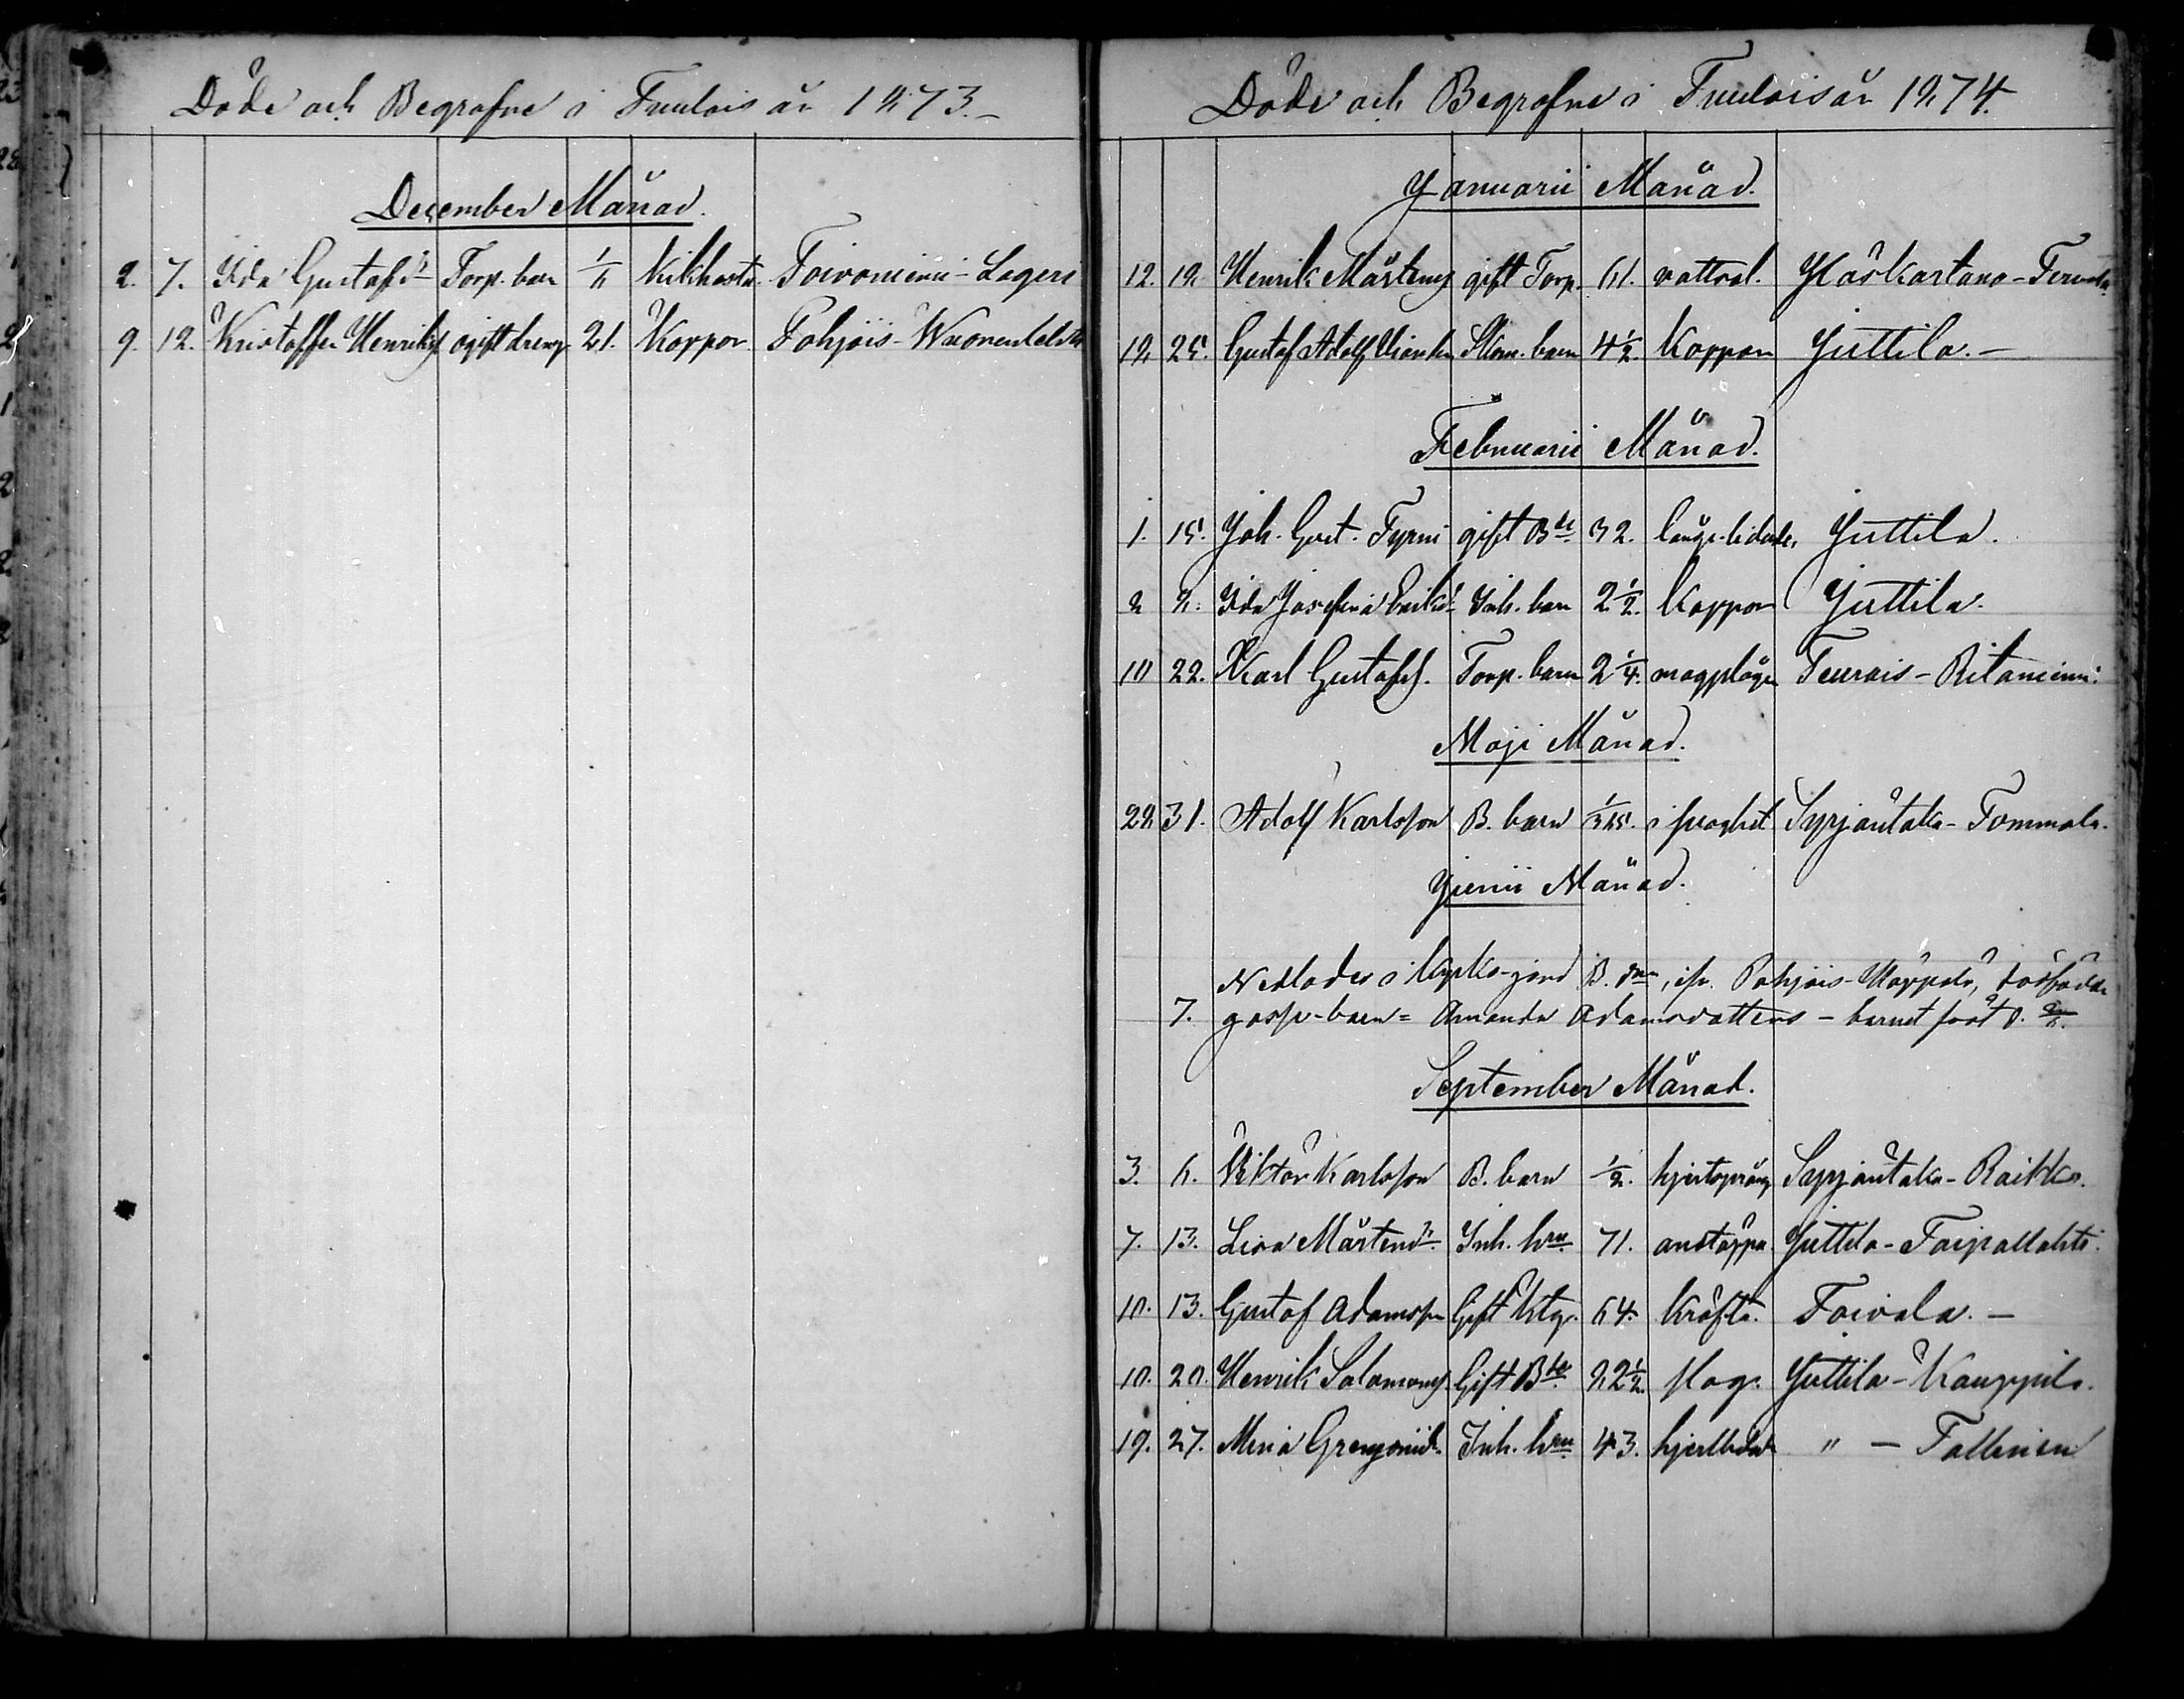 Döde och Begrafne i Tuulois år 1873.-
December Månad.
2. 7. Ida Gustafsd:r Torp. barn Kikhosta. Toivoniemi-Lageri
9. 12. Kristoffer Henriks. ogift dreng 21. Koppor Pohjois-
Döde och Begrafne i Tuulois år 1874.
Januarii Månad.
12. 18. Henrik Mårtens. gift Torp. 61. vattsot.
18. 25. Gustaf Adolf barn 4½. Koppor Juttila.-
Februarii Månad.
1. 15. Joh. Gust. Tyrni gift Bde 32. Juttila.
2 8. Ida Josefina Eriksd. Inh. barn 2½. Koppor Juttila.
10 22. Karl Gustafs. Torp. barn 2¼. magplågor Teurois-Ritaniemi.
Maji Månad.
28. 31. Adolf Karlsson B. barn i svaghet Syrjäntaka-Tommola.
Junii Månad.
Nedlades i kyrko-jord B. dr. ifr. Pohjois- dödfödda
7. gosse-barn = Amanda Adamsdotters - barnet föddt d.
September Månad.
3. 6. Viktor Karlsson B. barn ½. hjertsprång Syrjäntaka-Raikko.
7. 13. Lisa Mårtensd:r Inh. hru. 71. andtäppa Juttila-Taipallahti.
10. 13. Gustaf Adamsson Gift 64. Kräfta. Toivala.-
10. 20. Henrik Salomons. Gift Bde 82½. slag. Juttila-Kauppila.
19. 27. Mina Inh. hru. 43. " - Tallinen